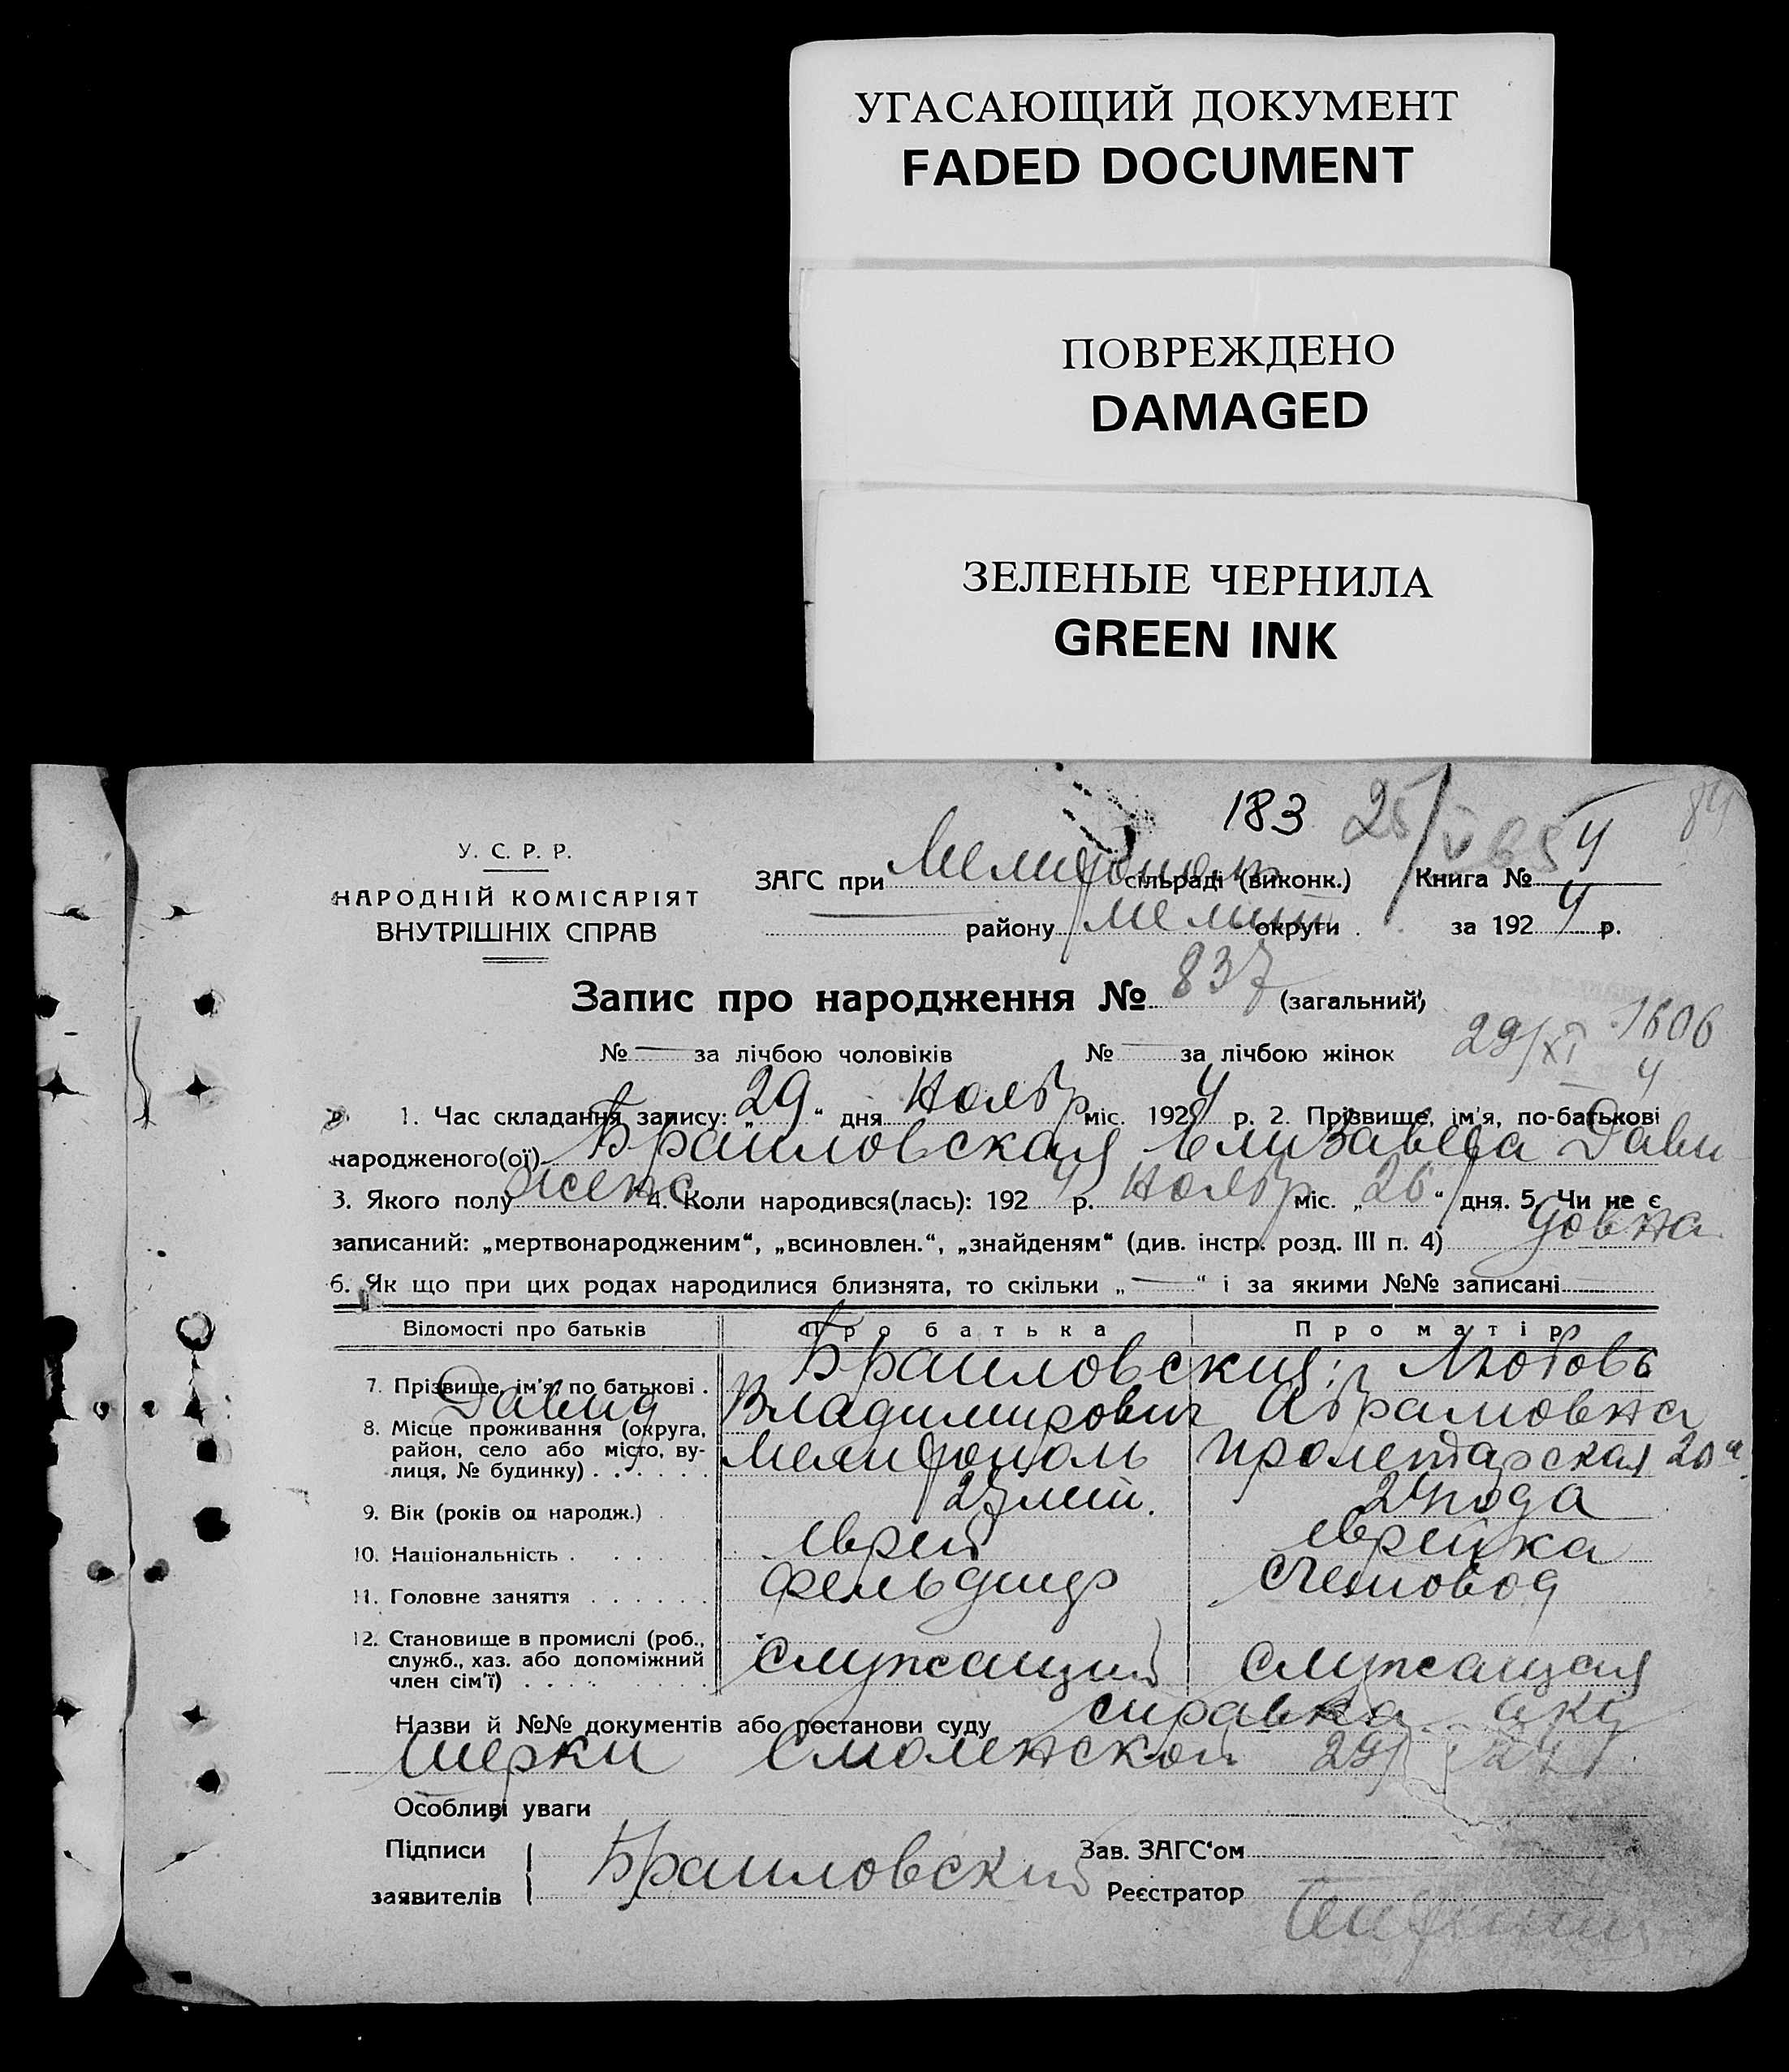 УГАСАЮЩИЙ ДОКУМЕНТ
FADED DOCUMENT
ПОВРЕЖДЕНО
DAMAGED
ЗЕЛЕНЫЕ ЧЕРНИЛА
GREEN INK
183 25/V 84
У. С. Р. Р.
НАРОДНІЙ КОМІСАРІЯТ
ВНУТРІШНІХ СПРАВ
ЗАГС при Мелитополь сільраді (виконк.) Книга № 4
району Мелит округи за 1924 р.
Запис про народження № 837 (загальний)
29/XI 1606
4
№ — за лічбою чоловіків № — за лічбою жінок
1. Час складання запису: „29“ дня Ноябр міс. 1924 р. 2. Прізвище, ім'я, по-батькові
народженого(ої) Браиловская Елизавета Дави
3. Якого полу женс 4. Коли народився(лась): 1924 р. Ноябр міс. „26“ дня. 5. Чи не є
довна
записаний: „мертвонародженим“, „всиновлен.“, „знайденям“ (див. інстр. розд. III п. 4)
6. Як що при цих родах народилися близнята, то скільки „—“ і за якими №№ записані
Відомості про батьків Про батька Про матір
7. Прізвище, ім'я, по батькові . Браиловския: Любовь
Давид Владимирович Абрамовна
8. Місце проживання (округа,
район, село або місто, ву-
лиця, № будинку) . . . . . . Мелитополь Пролетарская 20а
9. Вік (років од народж.) 27 лет. 24 года
10. Національність . . . . еврей еврейка
11. Головне заняття . . . . . . фельдшер счетовод
12. Становище в промислі (роб.,
служб., хаз. або допоміжний
член сім'ї) . . . . служащий служащая
Назви й №№ документів або постанови суду справка аку
шерки Смоленской 29/ 24
Особливі уваги
Підписи
заявителів Браиловский
Зав. ЗАГС'ом
Реєстратор